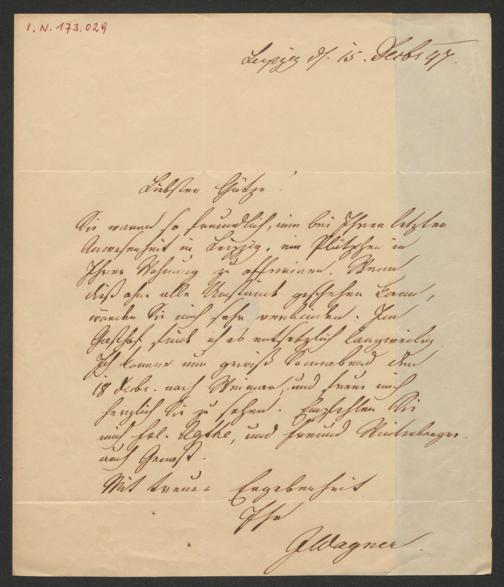 I. N. 173.029
Leipzig d. 15. Decbr 47.
Liebster Götze!
Sie waren so freundlich, mir bei Ihrer letzten
Anwesenheit in Leipzig, ein Plätzchen in
Ihrer Wohnung zu offeriren. Wenn
dieß ohne alle Umstände geschehen kann,
würden Sie mich sehr verbinden. Im
Gasthof finde ich es entsetzlich langweilig.
Ich komme nun gewiß Sonnabend den
18 Decbr. nach Weimar, und freue mich
herzlich Sie zu sehen. Empfehlen Sie
mich Frl. und Freund
auch Genast.
Mit treuer Ergebenheit
Ihr
Wagner.